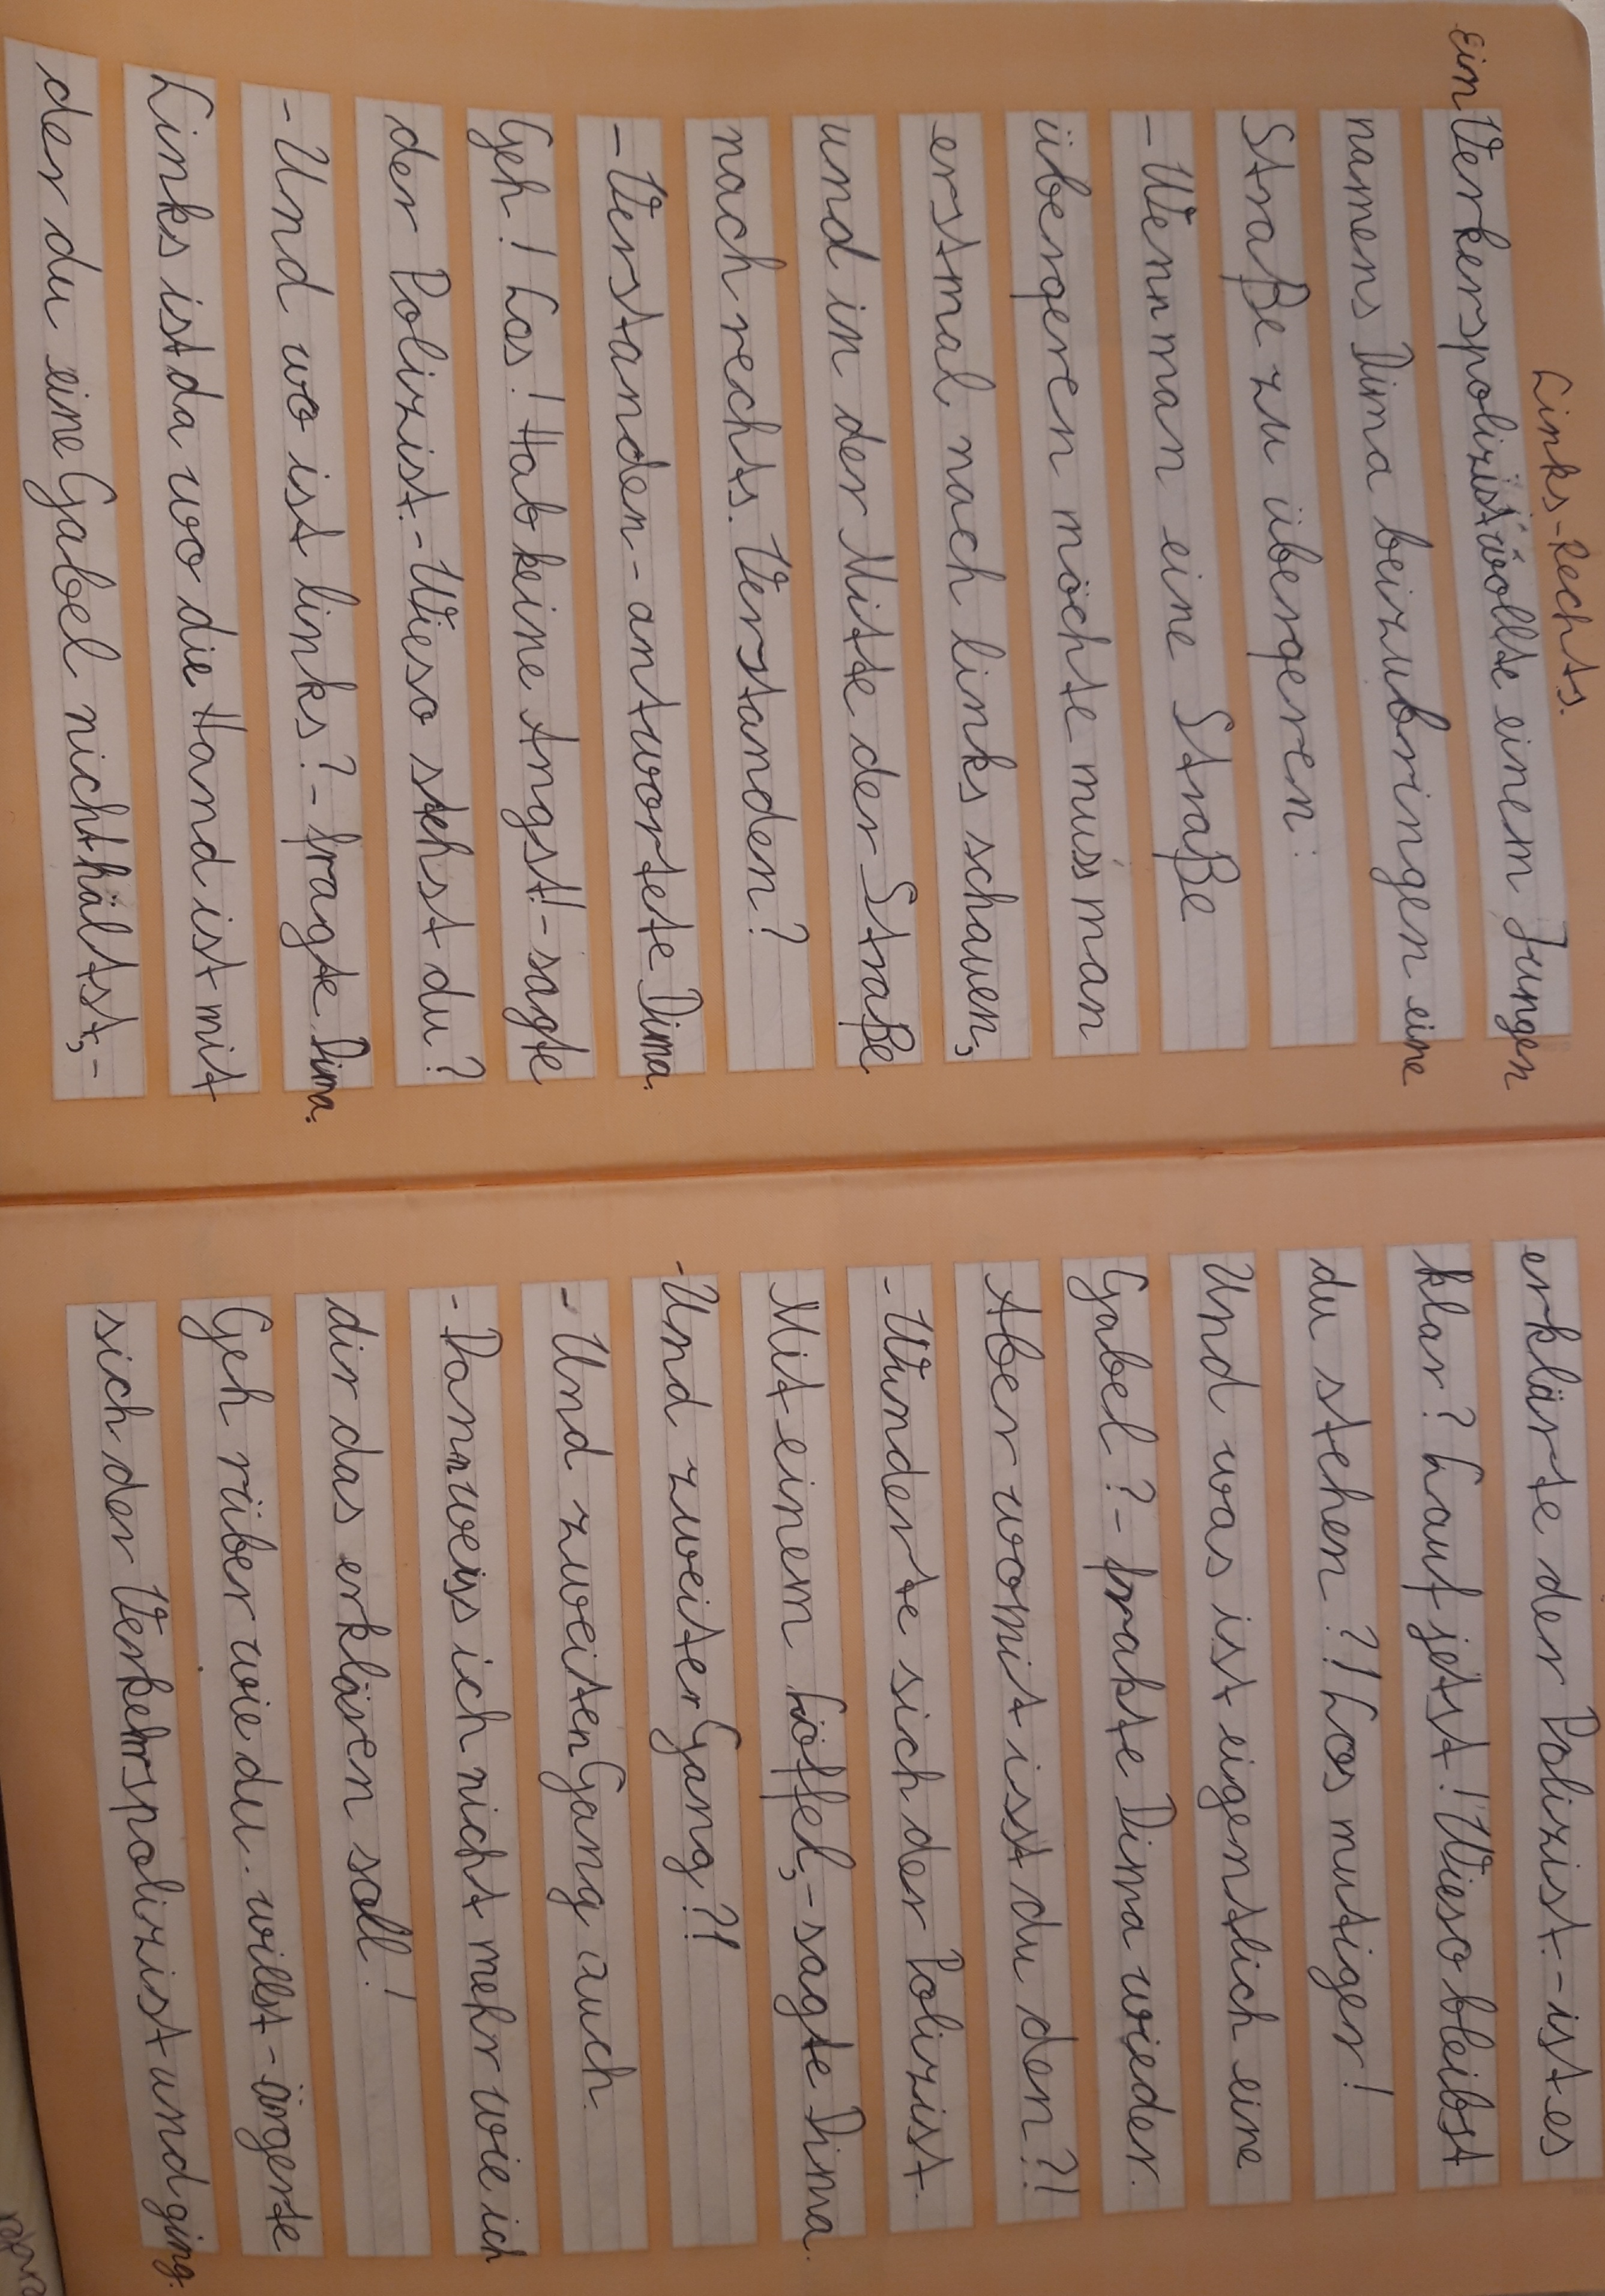 Links-Rechts.
ein Verkerspolizist wollte einem Jungen
namens Dima beizubringen eine
Straße zu übergeren:
- Wenn man eine Straße
übergeren möchte muss man
erstmal nach links schauen,
und in der Mitte der Straße
nach rechts. Verstanden?
- Verstanden - antwortete Dima.
Geh! Los! Hab keine Angst! - sagte
der Polizist. - Wieso stehst du?
- Und wo ist links? - fragte Dima.
Links ist da wo die Hand ist mit
der du eine Gabel nicht hältst, -
erklärte der Polizist. - ist es
klar? Lauf jetst! Wieso bleibst
du stehen?! Los mutiger!
Und was ist eigentlich eine
Gabel? - frakte Dima wieder.
Aber womit isst du den?!
- Wunderte sich der Polizist.
Mit einem Löffel, - sagte Dima.
- Und zweiter Gang?!
- Und zweiten Gang auch.
- Dann weiss ich nicht mehr wie ich
dir das erklären soll!
Geh rüber wie du willst - ärgerte
sich der Verkehrspolizist und ging.